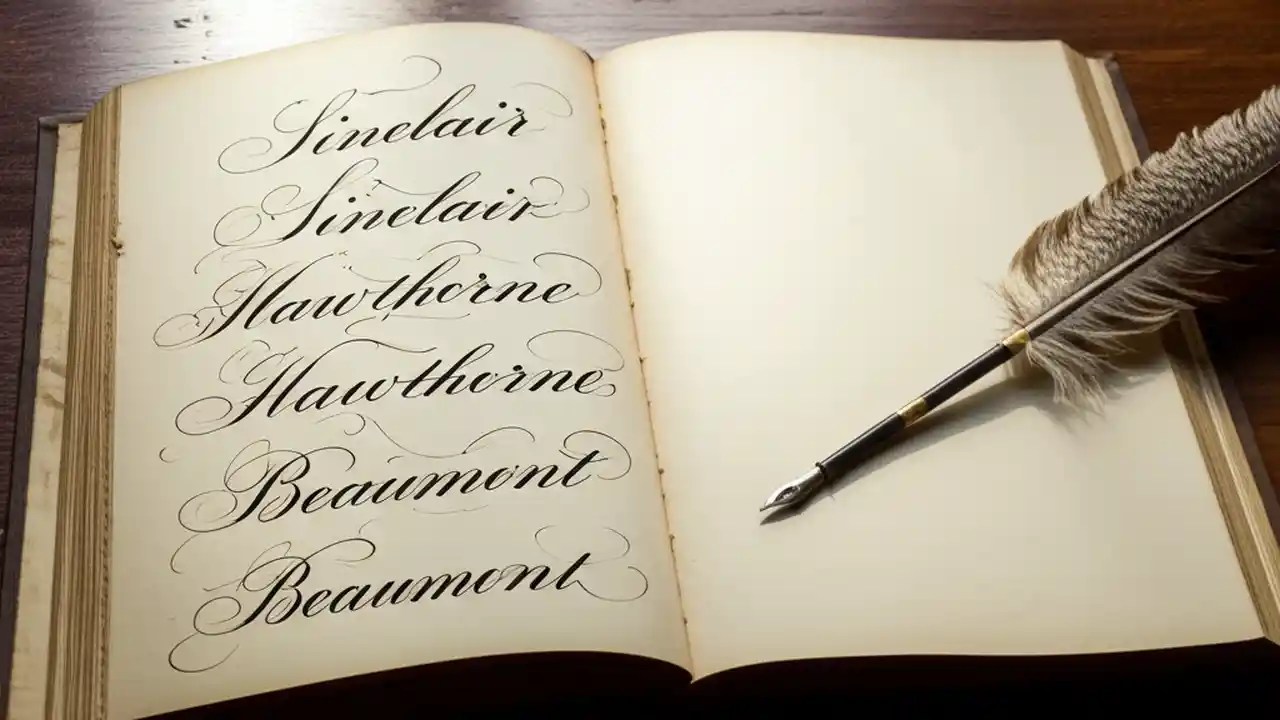 Sinclair
Sinclair
Hawthorne
Hawthorne
Beaumont
Beaumont